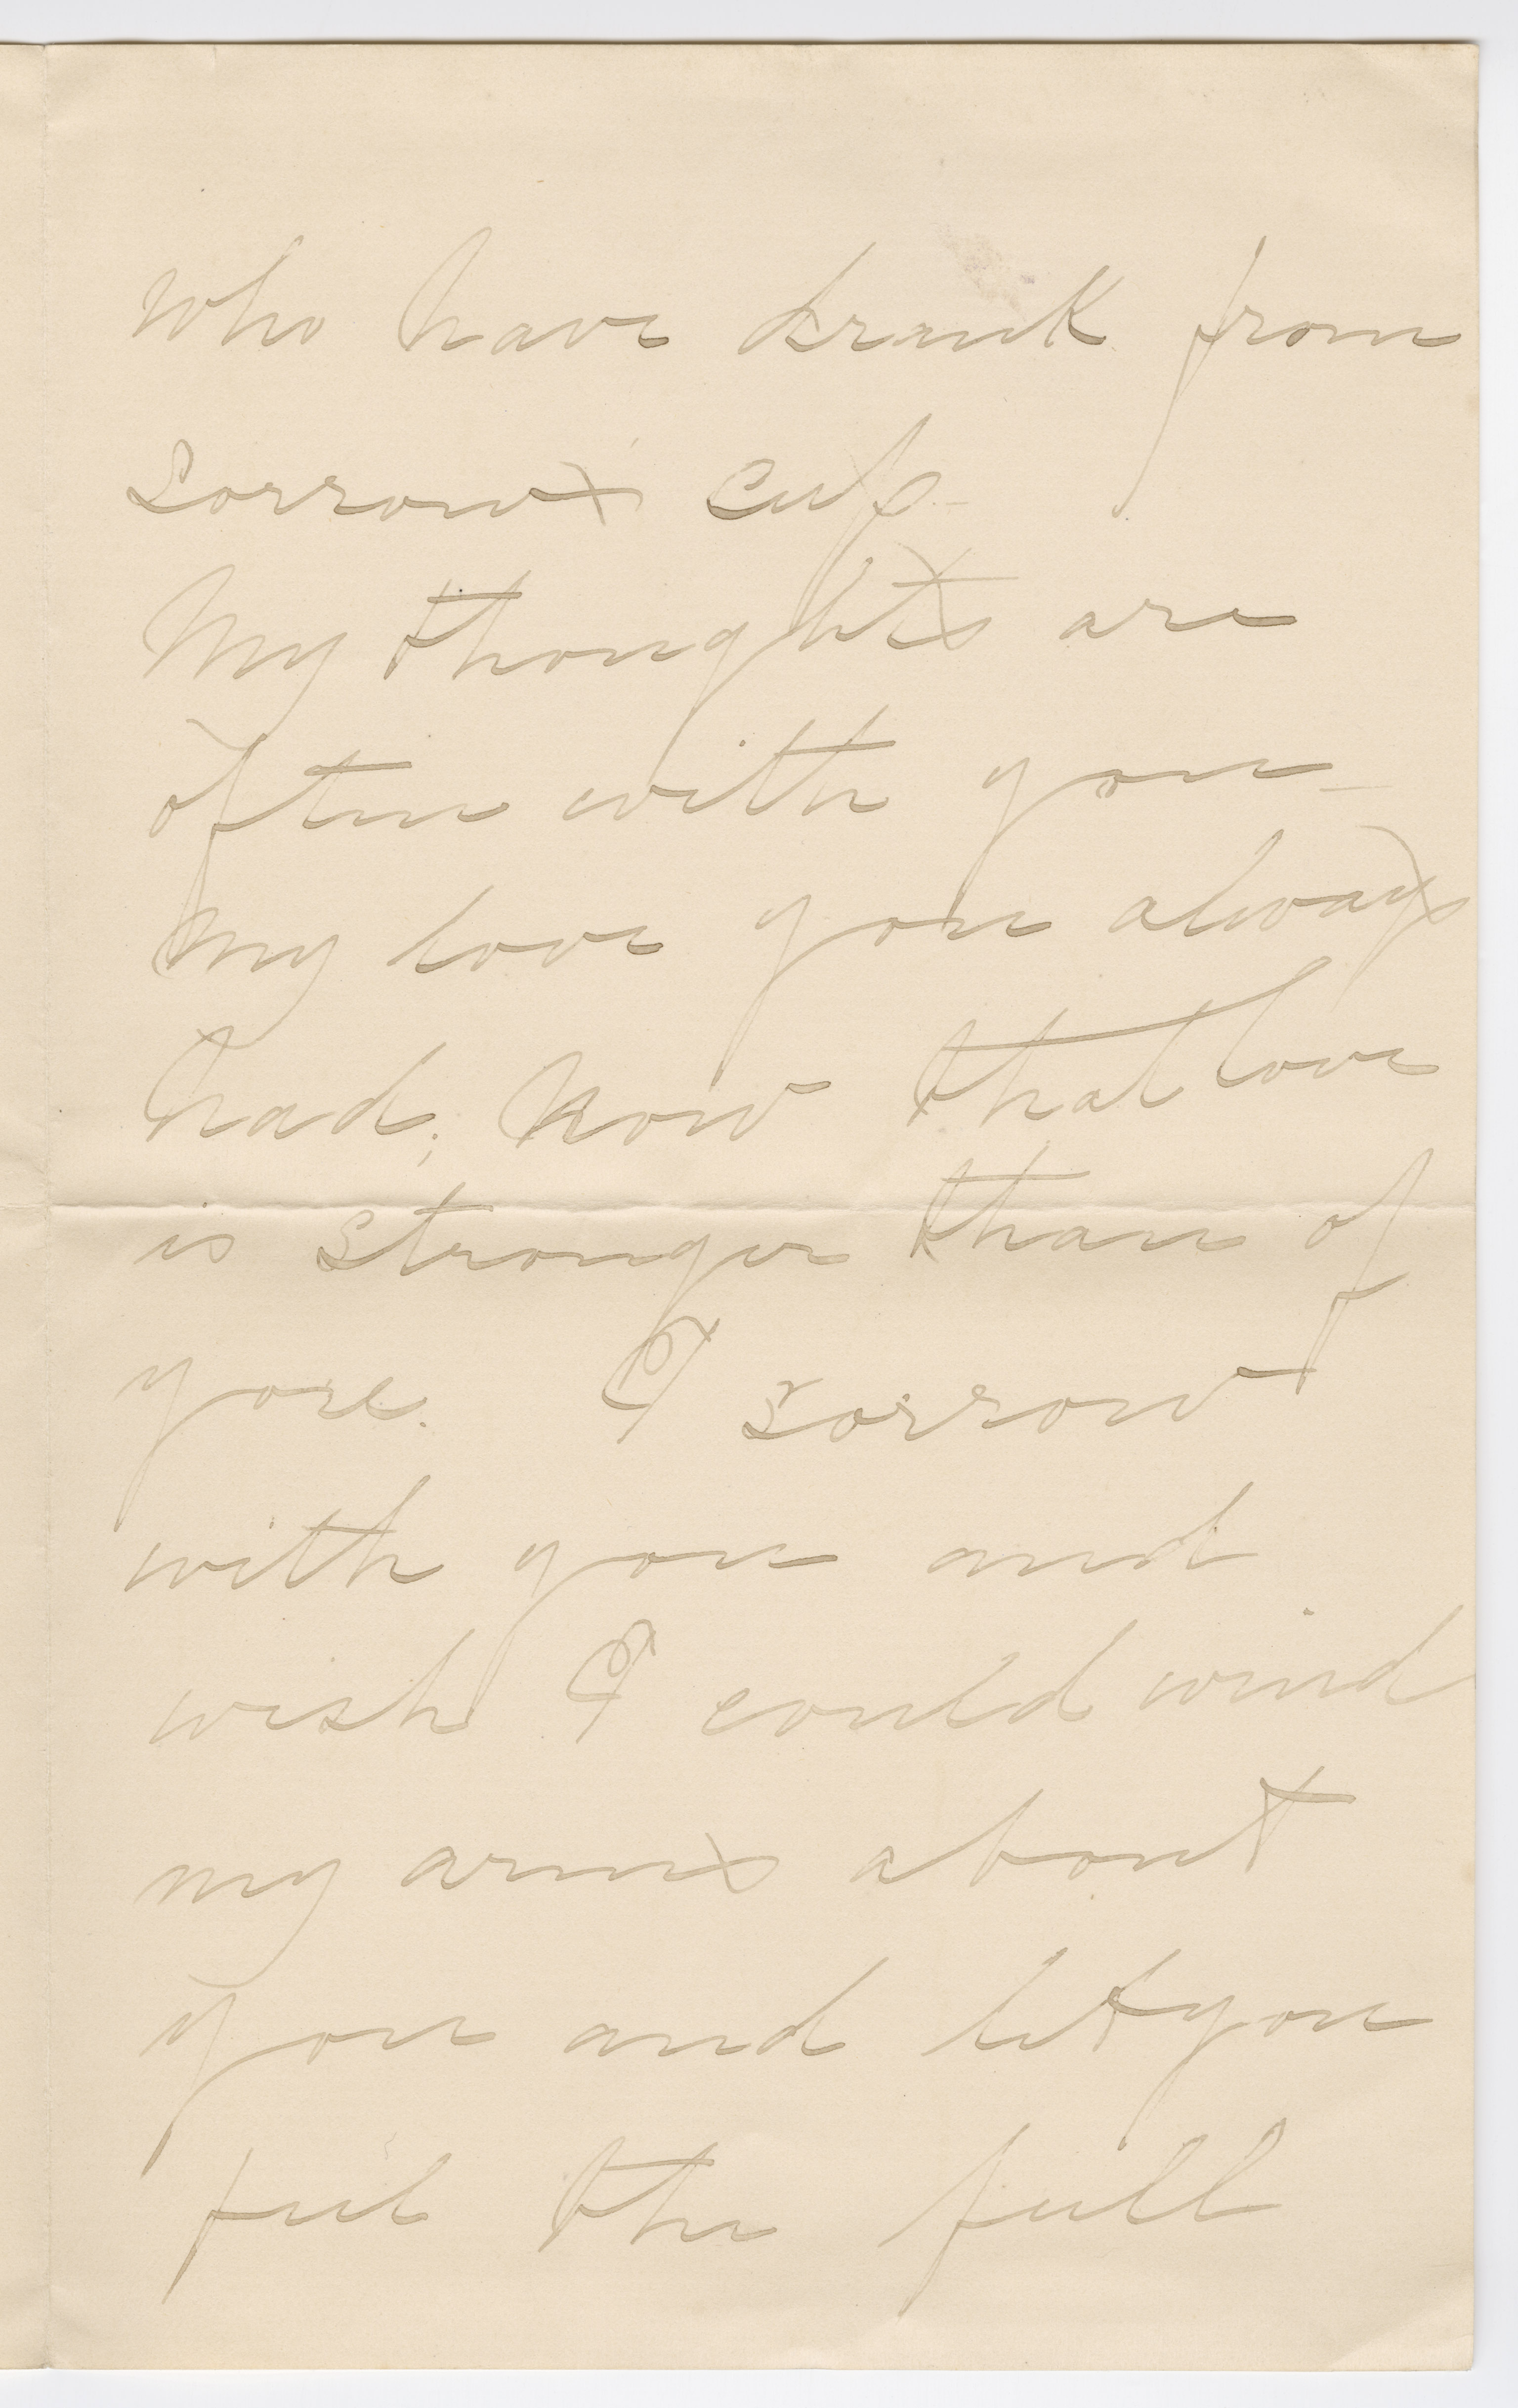 who have drank from
sorrows cup-
My thoughts are
often with you-
my love you always
had; now that love
is stronger than of
yore. I sorrow
with you and
wish I could wind
my arms about
you and let you
feel the full